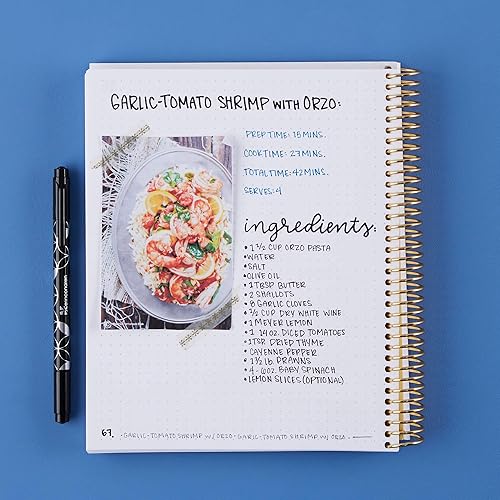 GARLIC-TOMATO SHRIMP WITH ORZO:
PREP TIME: 15 MINS.
COOK TIME: 27 MINS.
TOTAL TIME: 42 MINS.
SERVES: 4
ingredients:
• 1 1/2 CUP ORZO PASTA
• WATER
• SALT
• OLIVE OIL
• 1 TBSP BUTTER
• 2 SHALLOTS
• 8 GARLIC CLOVES
• 2/3 CUP DRY WHITE WINE
• 1 MEYER LEMON
• 1 14OZ. DICED TOMATOES
• 1 TSP DRIED THYME
• CAYENNE PEPPER
• 1 1/2 lb. PRAWNS
• 4-6OZ. BABY SPINACH
• LEMON SLICES (OPTIONAL)
67. · GARLIC-TOMATO SHRIMP W/ ORZO · GARLIC-TOMATO SHRIMP W/ ORZO